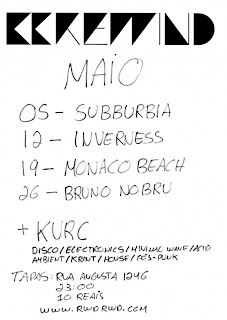 REWIND
MAIO
05 - SUBBURBIA
12 - INVERNESS
19 - MONACO BEACH
26 - BRUNO NOBRU
+ KURC
DISCO/ELECTRONICS/MINIMAL WAVE/ACID
AMBIENT/KRAUT/HOUSE/PÓS-PUNK
TAPAS: RUA AUGUSTA 1246
23:00
10 REAIS
WWW.RWDRWD.COM